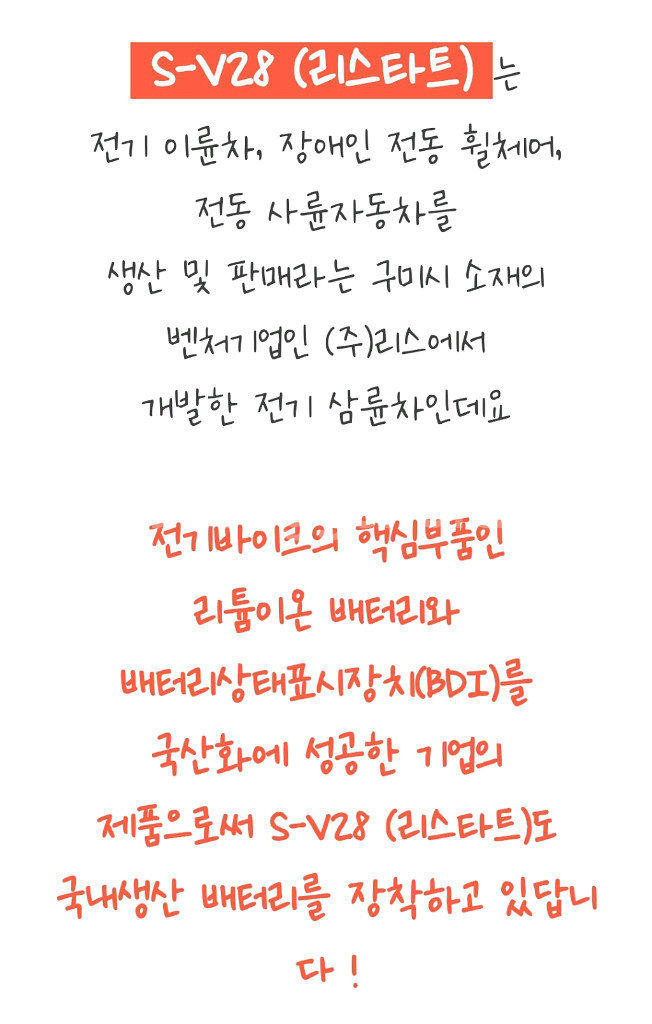 S-V28 (리스타트)는
전기 이륜차, 장애인 전동 휠체어,
전동 사륜자동차를
생산 및 판매라는 구미시 소재의
벤처기업인 (주)리스에서
개발한 전기 삼륜차인데요
전기바이크의 핵심부품인
리튬이온 배터리와
배터리상태표시장치(BDI)를
국산화에 성공한 기업의
제품으로써 S-V28 (리스타트)도
국내생산 배터리를 장착하고 있답니
다 !